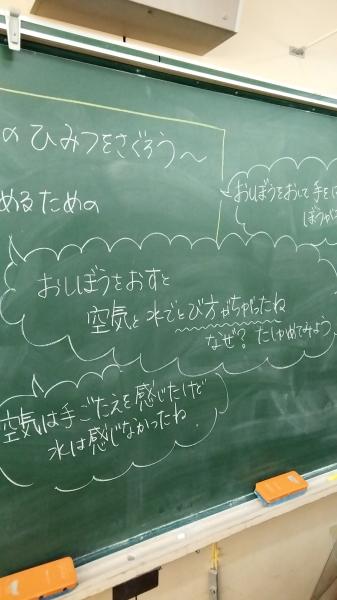 の ひみつをさぐろう～
めるための
おしぼうをおして手を
ぼうが
おしぼうをおすと
空気と水でとび方がちがったね
なぜ? たしかめてみよう
空気は手ごたえを感じたけど
水は感じなかったね